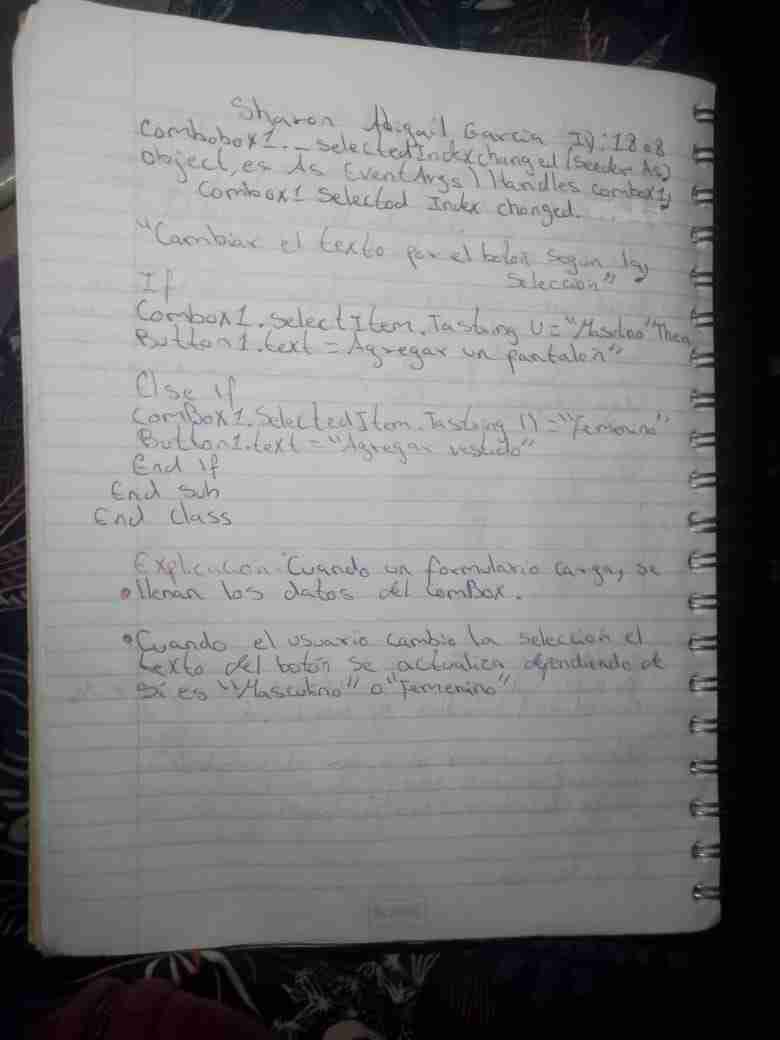 Sharon Abigail Garcia ID: 1808
Combobox1._selectedIndexchanged (Seeder As)
object, es As EventArgs) Handles combox1,
Combox1 Selected Index changed.
"Cambiar el texto por el boton segun la,
Selección"
If
Combox1.selectItem.Tastring U = "Masculino" Then
Button1.text = Agregar un pantalon"
Else if
ComBox1.SelectedItem.Tastring () = "Femenino"
Button1.text = "Agregar vestido"
End if
End sub
End class
Explicacion: Cuando un formulario carga, se
• llenan los datos del ComBox.
• Cuando el usuario cambia la selección el
texto del botón se actualiza dependiendo de
si es "Masculino" o "Femenino"